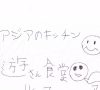 アジアのキッチン
遊さん食堂